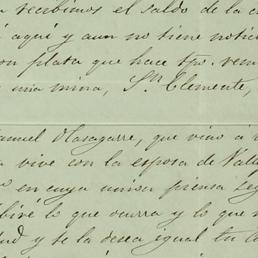 recibimos el saldo de la c
aquí y aun no tiene notici
on plata que hace tpo. rem
una mina, Sn. Clemente,
anuel Olasagarre, que vino á
a vive con la esposa de Vall
en cuya union piensa
biré lo que ocurra y lo que
ud y se la desea igual tu